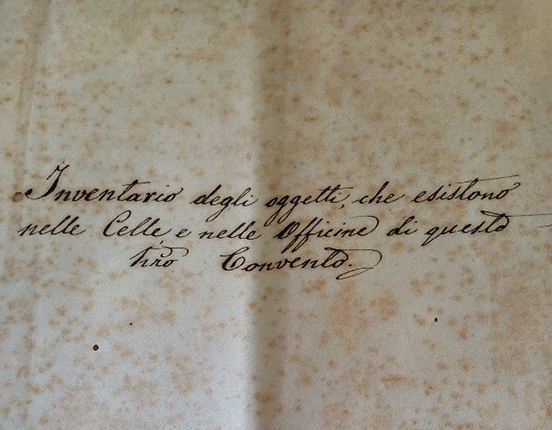 Inventario degli oggetti, che esistono
nelle Celle e nelle Officine di questo
ñro Convento.